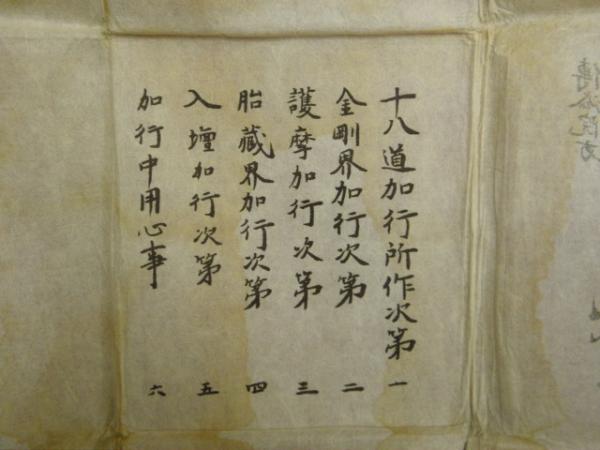 十八道加行所作次第 一
金剛界加行次第 二
護摩加行次第 三
胎藏界加行次第 四
入壇加行次第 五
加行中用心事 六